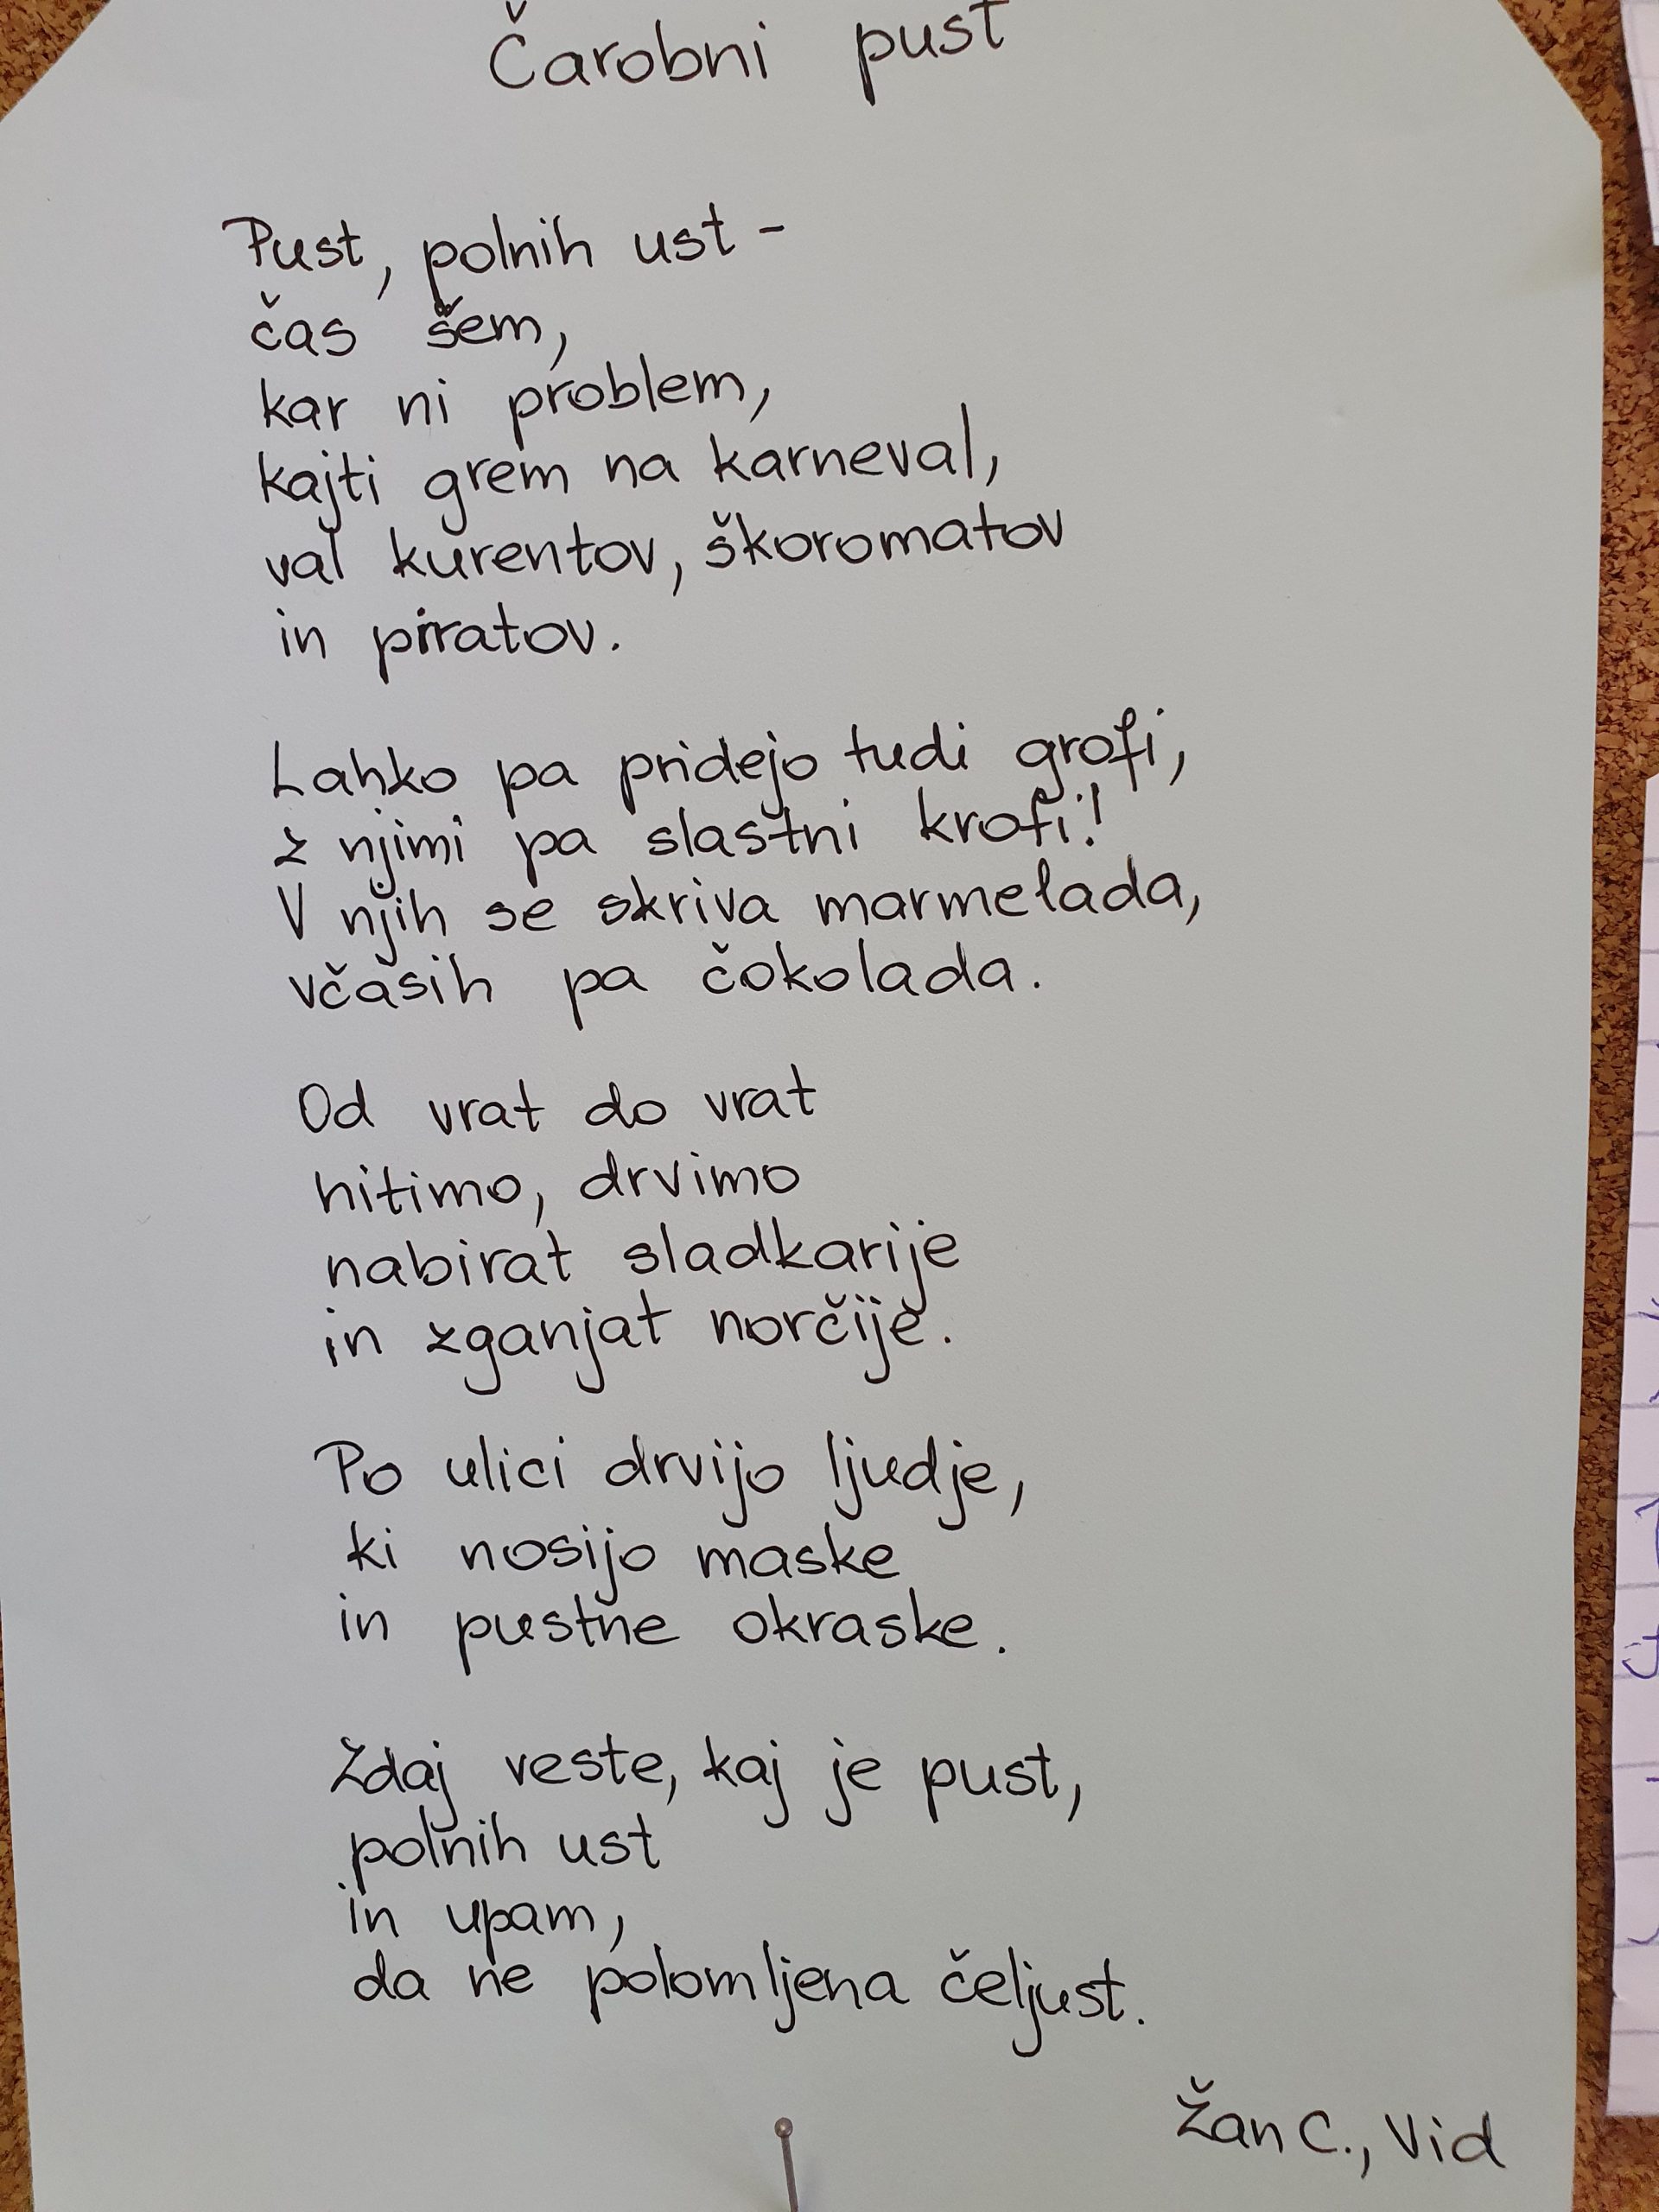 Čarobni pust
Pust, polnih ust -
čas šem,
kar ni problem,
kajti grem na karneval,
val kurentov, škoromatov
in piratov.
Lahko pa pridejo tudi grofi,
z njimi pa slastni krofi!
V njih se skriva marmelada,
včasih pa čokolada.
Od vrat do vrat
hitimo, drvimo
nabirat sladkarije
in zganjat norčije.
Po ulici drvijo ljudje,
ki nosijo maske
in pustne okraske.
Zdaj veste, kaj je pust,
polnih ust
in upam,
da ne polomljena čeljust.
Žan C., Vid